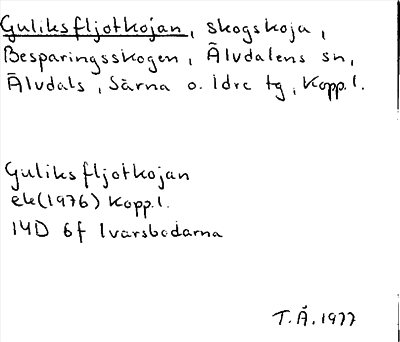 Guliksfljotkojan, skogskoja,
Besparingsskogen, Älvdalens sn,
Älvdals, Särna o. Idre tg, Kopp.l.
Guliksfljotkojan
ek(1976) Kopp.l.
14D 6f Ivarsbodarna
T.Å. 1977